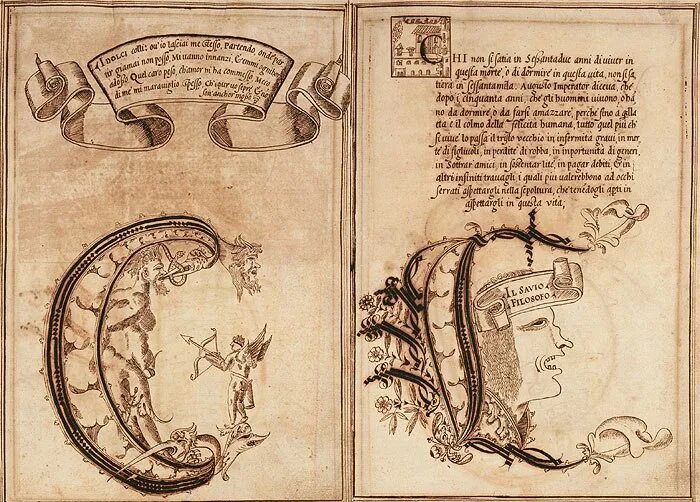 I DOLCI colli: ou'io lasciai me stesso, Partendo, onde par
tir giamai non posso, Mi uanno innanzi, & emmi ogn'hor
adosso Quel caro peso, ch'amor m'ha commesso Meco
di me mi marauiglio spesso, Ch'i pur uo sempre & non
son anchor mosso
CHI non si satia in Sessantadue anni di uiuer in
questa morte, o di dormire in questa vita, non si sa,
tierà in sessantamila. Augusto Imperator diceua, che
dopo i cinquanta anni, che gli huomini uiuono, o hã
no da dormire, o da farsi amazzare, perche sino a q̃lla
età è il colmo della felicità humana, tutto quel più ch'
si viue lo passa il tristo vecchio in infermità graui, in mor,
te di figliuoli, in perdite di robba, in inportunità di generi,
in sottrar amici, in sostentar lite, in pagar debiti & in
altri infiniti trauagli i quali più valerebbono ad occhi
serrati aspettargli nella sepoltura, che tenẽdogli apti in
aspettargli in questa vita;
IL SAVIO
FILOSOFO